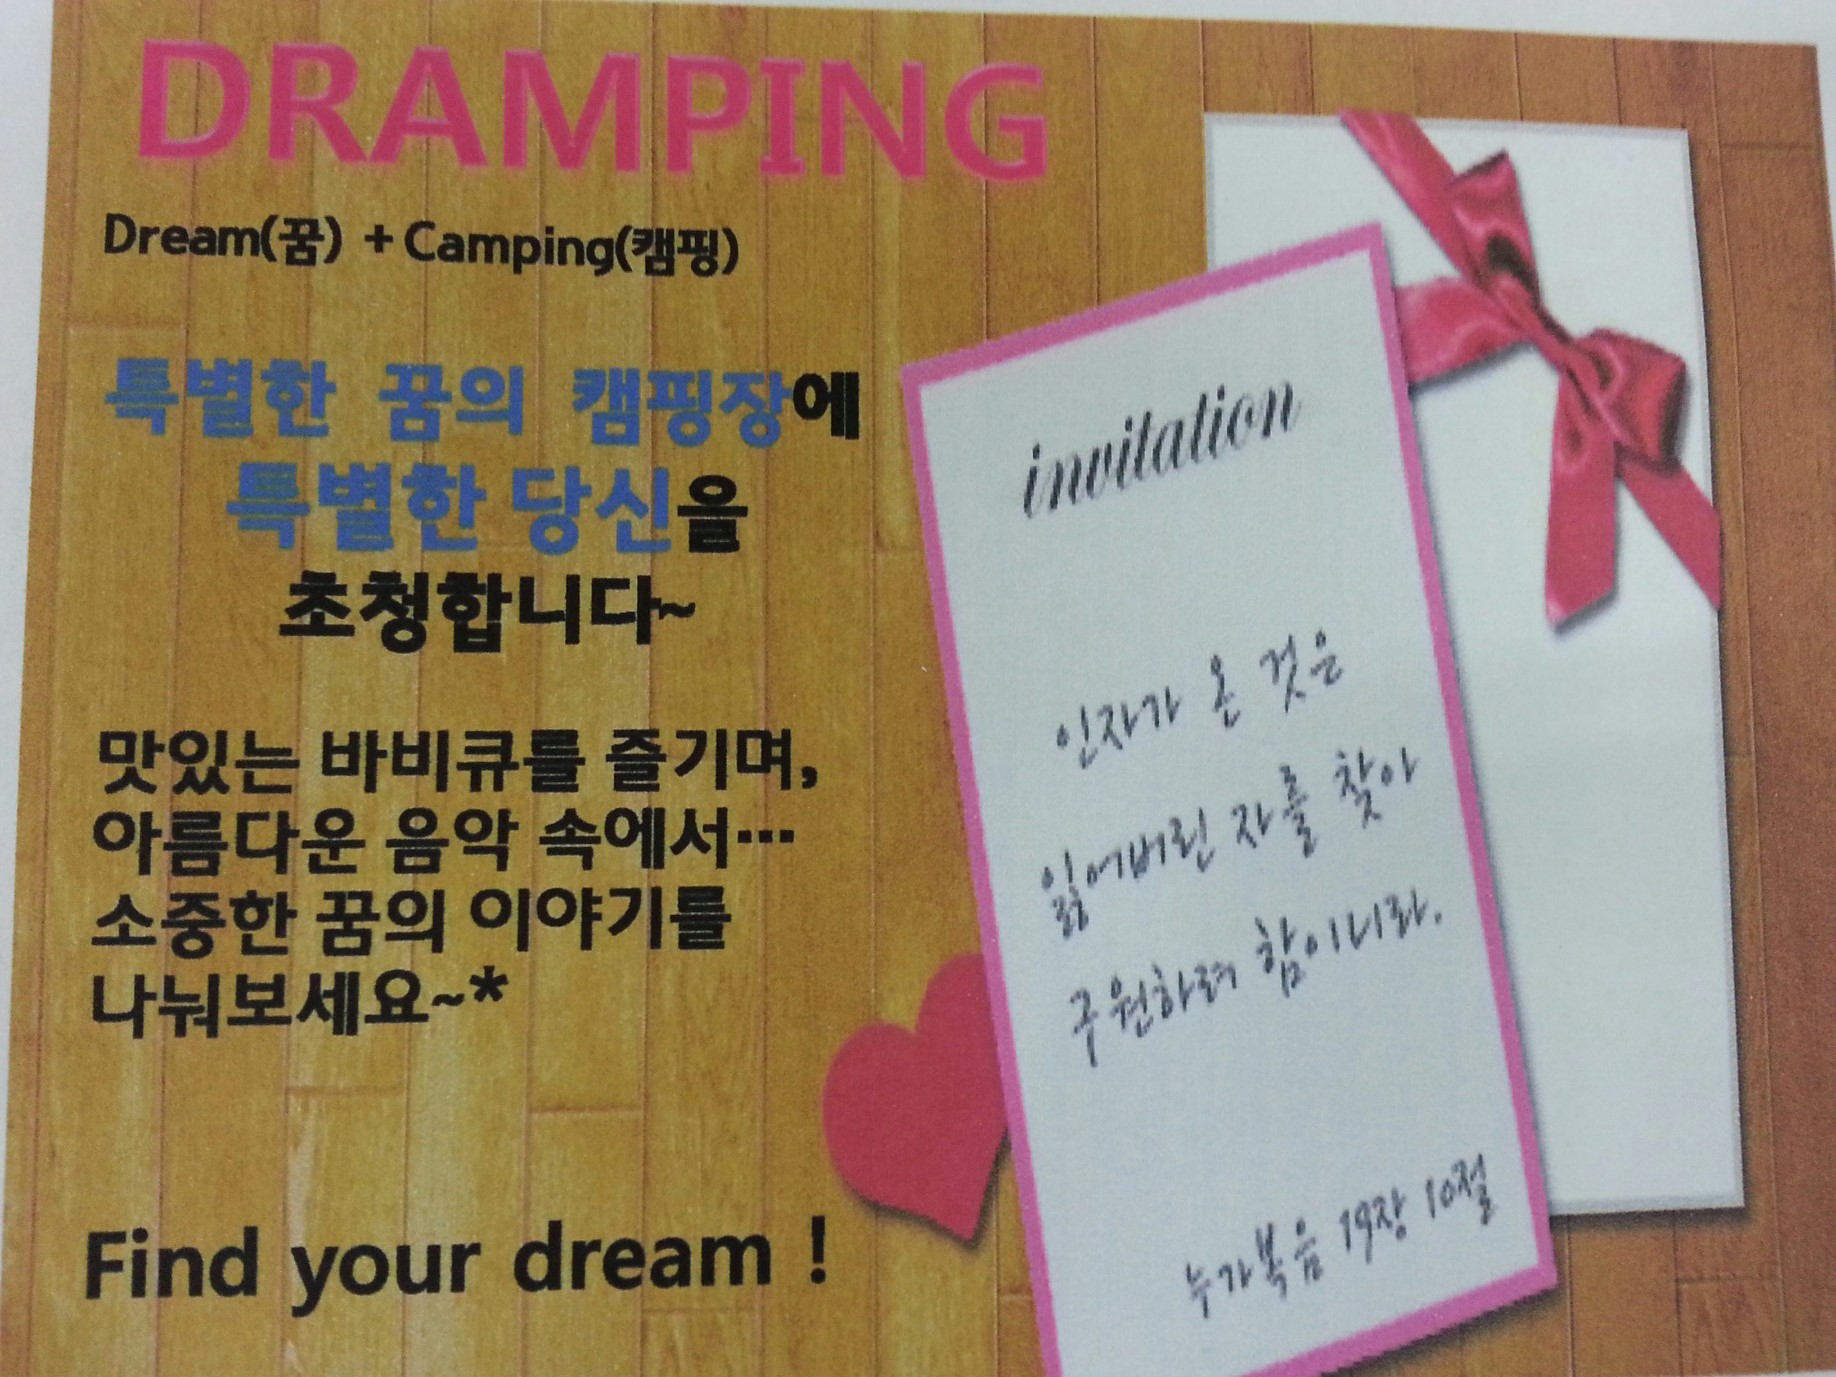 DRAMPING
Dream(꿈) + Camping(캠핑)
특별한 꿈의 캠핑장에
특별한 당신을
초청합니다~
맛있는 바비큐를 즐기며,
아름다운 음악 속에서…
소중한 꿈의 이야기를
나눠보세요~*
Find your dream !
invitation
인자가 온 것은
잃어버린 자를 찾아
구원하려 함이니라.
누가복음 19장 10절